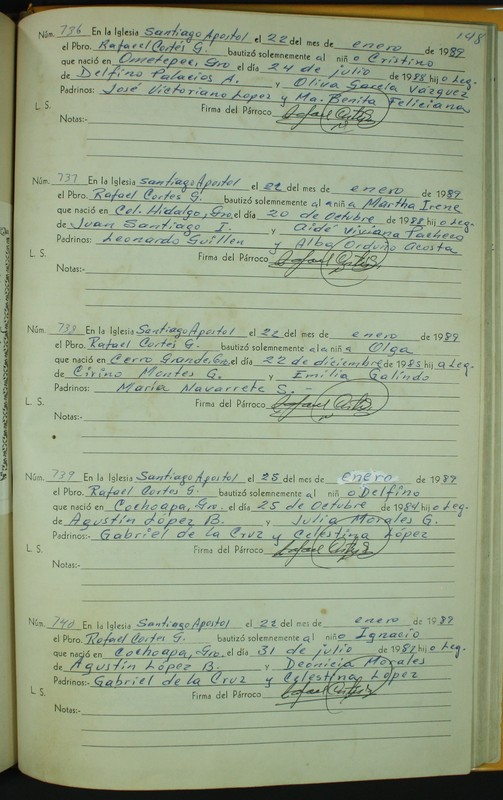 148
Núm. 736 En la Iglesia Santiago Apostol el 22 del mes de enero de 1989
el Pbro. Rafael Cortés G. bautizó solemnemente al niño Cristino
que nació en Ometepec, Gro el día 24 de julio de 1988 hijo Leg.
de Delfino Palacios A. y Oliva García Vázquez
Padrinos: José Victoriano Lopez y Ma. Benita Feliciana
L. S. Firma del Párroco Rafael Cortés G.
Notas:-
Núm. 737 En la Iglesia Santiago Apostol el 22 del mes de enero de 1989
el Pbro. Rafael Cortes G. bautizó solemnemente al niña Martha Irene
que nació en Col. Hidalgo, Gro. el día 20 de Octubre de 1988 hijo Leg.
de Juan Santiago I. y Aidé Viviana Pacheco
Padrinos: Leonardo Guillen y Alba Orduño Acosta
L. S. Firma del Párroco Rafael Cortés G.
Notas:-
Núm. 738 En la Iglesia Santiago Apostol el 22 del mes de enero de 1989
el Pbro. Rafael Cortés G. bautizó solemnemente a la niña Olga
que nació en Cerro Grande, Gro. el día 22 de diciembre de 1985 hija Leg.
de Cirino Montes G. y Emilia Galindo
Padrinos: María Navarrete S. - -
L. S. Firma del Párroco Rafael Cortés G.
Notas:-
Núm. 739 En la Iglesia Santiago Apostol el 25 del mes de enero de 1989
el Pbro. Rafael Cortes G. bautizó solemnemente al niño Delfino
que nació en Cochoapa, Gro. el día 25 de Octubre de 1984 hijo Leg.
de Agustín López B. y Julia Morales G.
Padrinos:- Gabriel de la Cruz y Celestina López
L. S. Firma del Párroco Rafael Cortés G.
Notas:-
Núm. 740 En la Iglesia Santiago Apostol el 22 del mes de enero de 1989
el Pbro. Rafael Cortes G. bautizó solemnemente al niño Ignacio
que nació en Cochoapa, Gro. el día 31 de julio de 1981 hijo Leg.
de Agustín López B. y Deonicia Morales
Padrinos:- Gabriel de la Cruz y Celestina López
L. S. Firma del Párroco Rafael Cortés G.
Notas:-